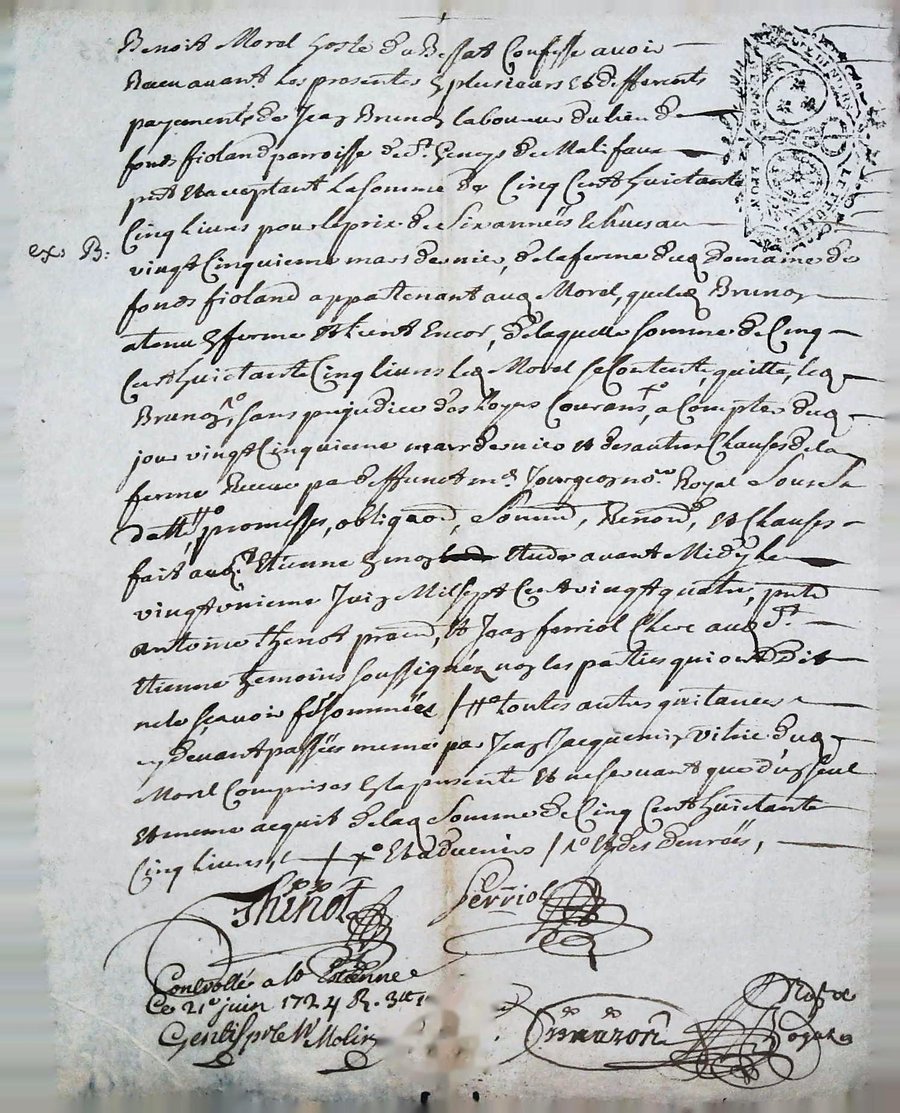 Benoit Morel hoste du Bessat Confesse avoir
Receu avant les presentes en plusieurs et differents
payements de Jean Brunon laboureur du lieu de
fonds fioland parroisse de St Genys de Malifaux
pnt et acceptant la somme de Cinq Cent huictante
ex. B:
Cinq livres pour le prix de Six années echues au
vingt Cinquieme mars dernier, de la ferme du Domaine de
fonds fioland appartenant aud Morel, que led Brunon
a tenu en ferme et tient Encor, de laquelle somme de Cinq
Cent huictante Cinq livres led Morel se Contente, quitte, led
Brunon, sans prejudice des Courans, a Compter dud
jour vingt Cinquieme mars dernier et des autres Clauses de la
ferme Receue par deffunct me Jourgeon nore Royal Sous sa
datte, promesses, obligaon, Soumis, Renon, et Clauses
fait aud St Etienne en mon etude avant Midy le
vingt unieme Juin Mil sept Cent vingt quatre, pnts
antoine thenot pratn, et Jean ferriol Clerc aud St
Etienne temoins soussignez non les parties qui ont Dit
ne le sçavoir fe sommées / toutes autres quitances
cy devant passées meme par Jean Jacquemin vitrier dud
Morel Comprises en la presente et ne servant que d'un seul
et meme acquit de lad Somme de Cinq Cent huictante
Cinq livres, et advenir / et des denrées,
Thinot
Ferriol
Conerollé a St Estienne
Ce 21e juin 1724 R. 3tt
Gentis pr le Sr Molin